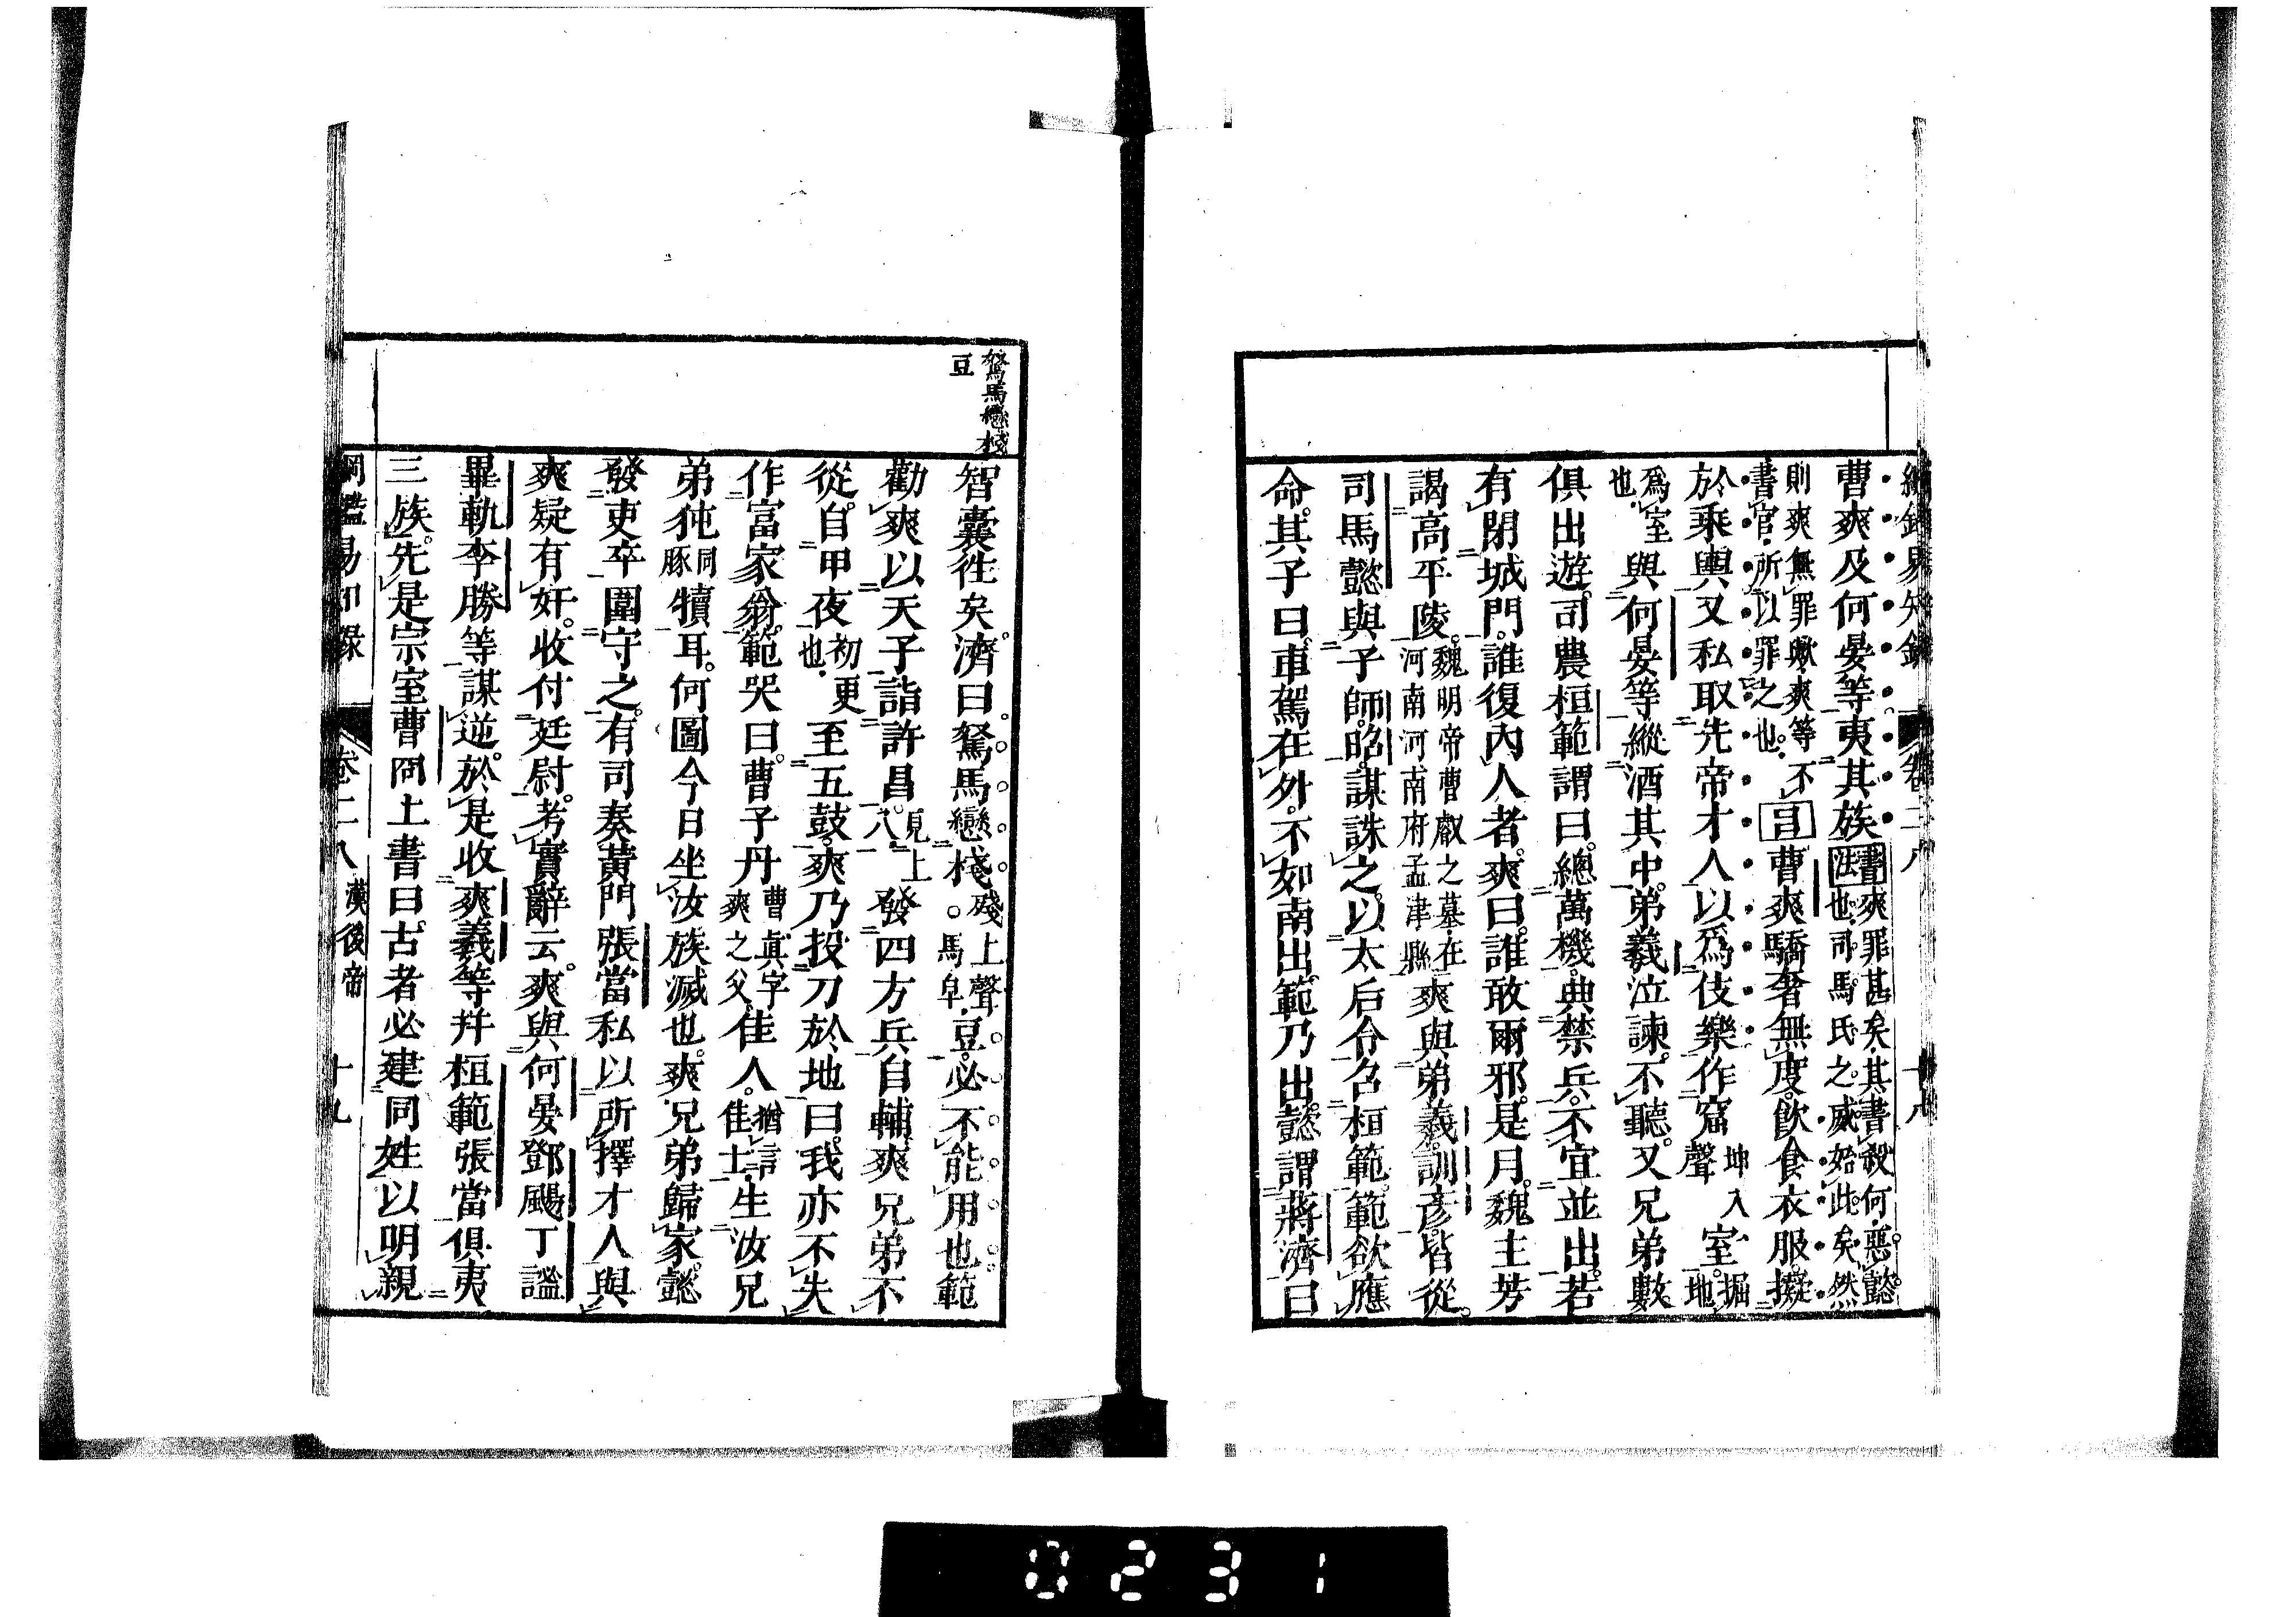 曹爽及何晏等夷其族書法爽罪甚矣其書殺何惡懿也司馬氏之威始此矣然
則爽無罪歟爽等不書官所以罪之也目曹爽驕奢無度飲食衣服擬
於乘輿又私取先帝才人以爲伎樂作窟坤入聲室掘地
爲室也與何晏等縱酒其中弟羲泣諫不聽又兄弟數
俱出遊司農桓範謂曰總萬機典禁兵不宜並出若
有閉城門誰復內人者爽曰誰敢爾邪是月魏主芳
謁高平陵魏明帝曹叡之墓在河南河南府孟津縣爽與弟羲訓彥皆從
司馬懿與子師昭謀誅之以太后令召桓範範欲應
命其子曰車駕在外不如南出範乃出懿謂蔣濟曰
駑馬戀棧
豆
智囊徃矣濟曰駑馬戀棧殘上聲馬皁豆必不能用也範
勸爽以天子詣許昌見上八發四方兵自輔爽兄弟不
從自甲夜初更也至五鼓爽乃投刀於地曰我亦不失
作富家翁範哭曰曹子丹曹眞字爽之父佳人猶言佳士生汝兄
弟㹠同豚犢耳何圖今日坐汝族滅也爽兄弟歸家懿
發吏卒圍守之有司奏黃門張當私以所擇才人與
爽疑有奸收付廷尉考實辭云爽與何晏鄧颺丁謐
畢軌李勝等謀逆於是收爽羲等幷桓範張當俱夷
三族先是宗室曹冏上書曰古者必建同姓以明親
綱鑑易知錄 卷二八 漢後帝 十九
0231